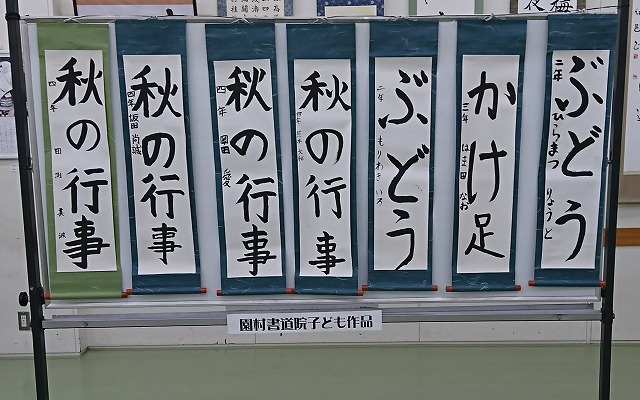 ぶどう
二年 いひらまつ りょうと
かけ足
三年 はま田 なお
ぶどう
二年 もりわき いろ
秋の行事
秋の行事
四年 岡田 愛
秋の行事
四年 坂田 尚誠
秋の行事
四年 田渕 美波
園村書道院子ども作品